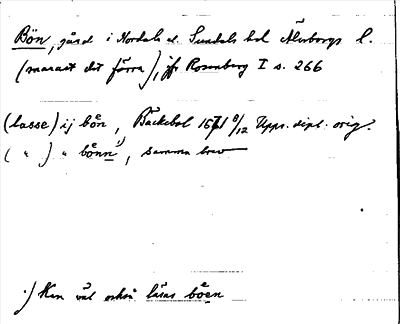 Bön, gård i Nordals el. Sundals hd Älvsborgs l.
(snarast det förra), jfr Rosenberg I s. 266
(lasse) ij bön, Bäckebol 1671 8/12 Upps. dipl. orig.
( " ) " bönn¹), samma brev
¹) Kan väl också läsas böen